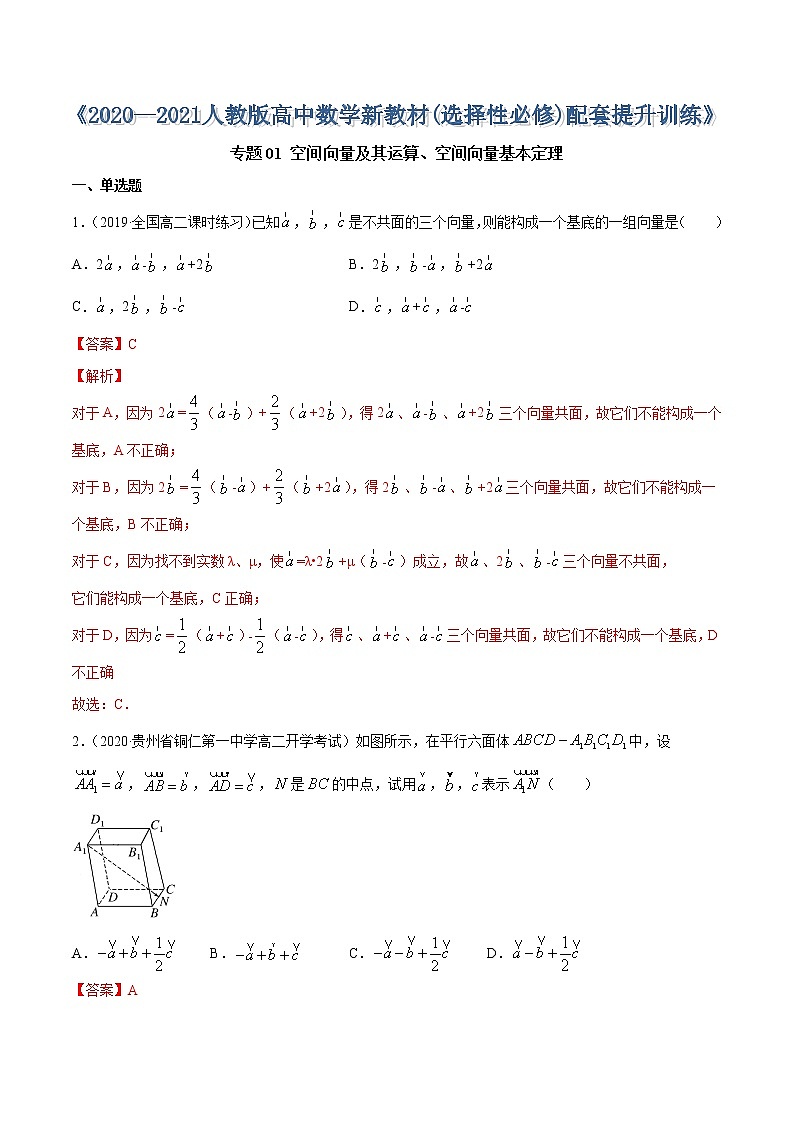 《2020—2021人教版高中数学新教材(选择性必修)配套提升训练》
专题01 空间向量及其运算、空间向量基本定理
一、单选题
1.（2019·全国高二课时练习）已知a，b，c是不共面的三个向量，则能构成一个基底的一组向量是（　　）
A．2a，a-b，a+2b　　B．2b，b-a，b+2a
C．a，2b，b-c　　D．c，a+c，a-c
【答案】C
【解析】
对于A，因为2a=4/3（a-b）+2/3（a+2b），得2a、a-b、a+2b三个向量共面，故它们不能构成一个
基底，A不正确；
对于B，因为2b=4/3（b-a）+2/3（b+2a），得2b、b-a、b+2a三个向量共面，故它们不能构成一
个基底，B不正确；
对于C，因为找不到实数λ、μ，使a=λ•2b+μ（b-c）成立，故a、2b、b-c三个向量不共面，
它们能构成一个基底，C正确；
对于D，因为c=1/2（a+c）-1/2（a-c），得c、a+c、a-c三个向量共面，故它们不能构成一个基底，D
不正确
故选：C．
2.（2020·贵州省铜仁第一中学高二开学考试）如图所示，在平行六面体ABCD－A₁B₁C₁D₁中，设
AA₁=a，AB=b，AD=c，N是BC的中点，试用a，b，c表示A₁N（　　）
D₁ C₁
A₁ B₁
D C
N
A B
A．-a+b+1/2c　　B．-a+b+c　　C．-a-b+1/2c　　D．a-b+1/2c
【答案】A